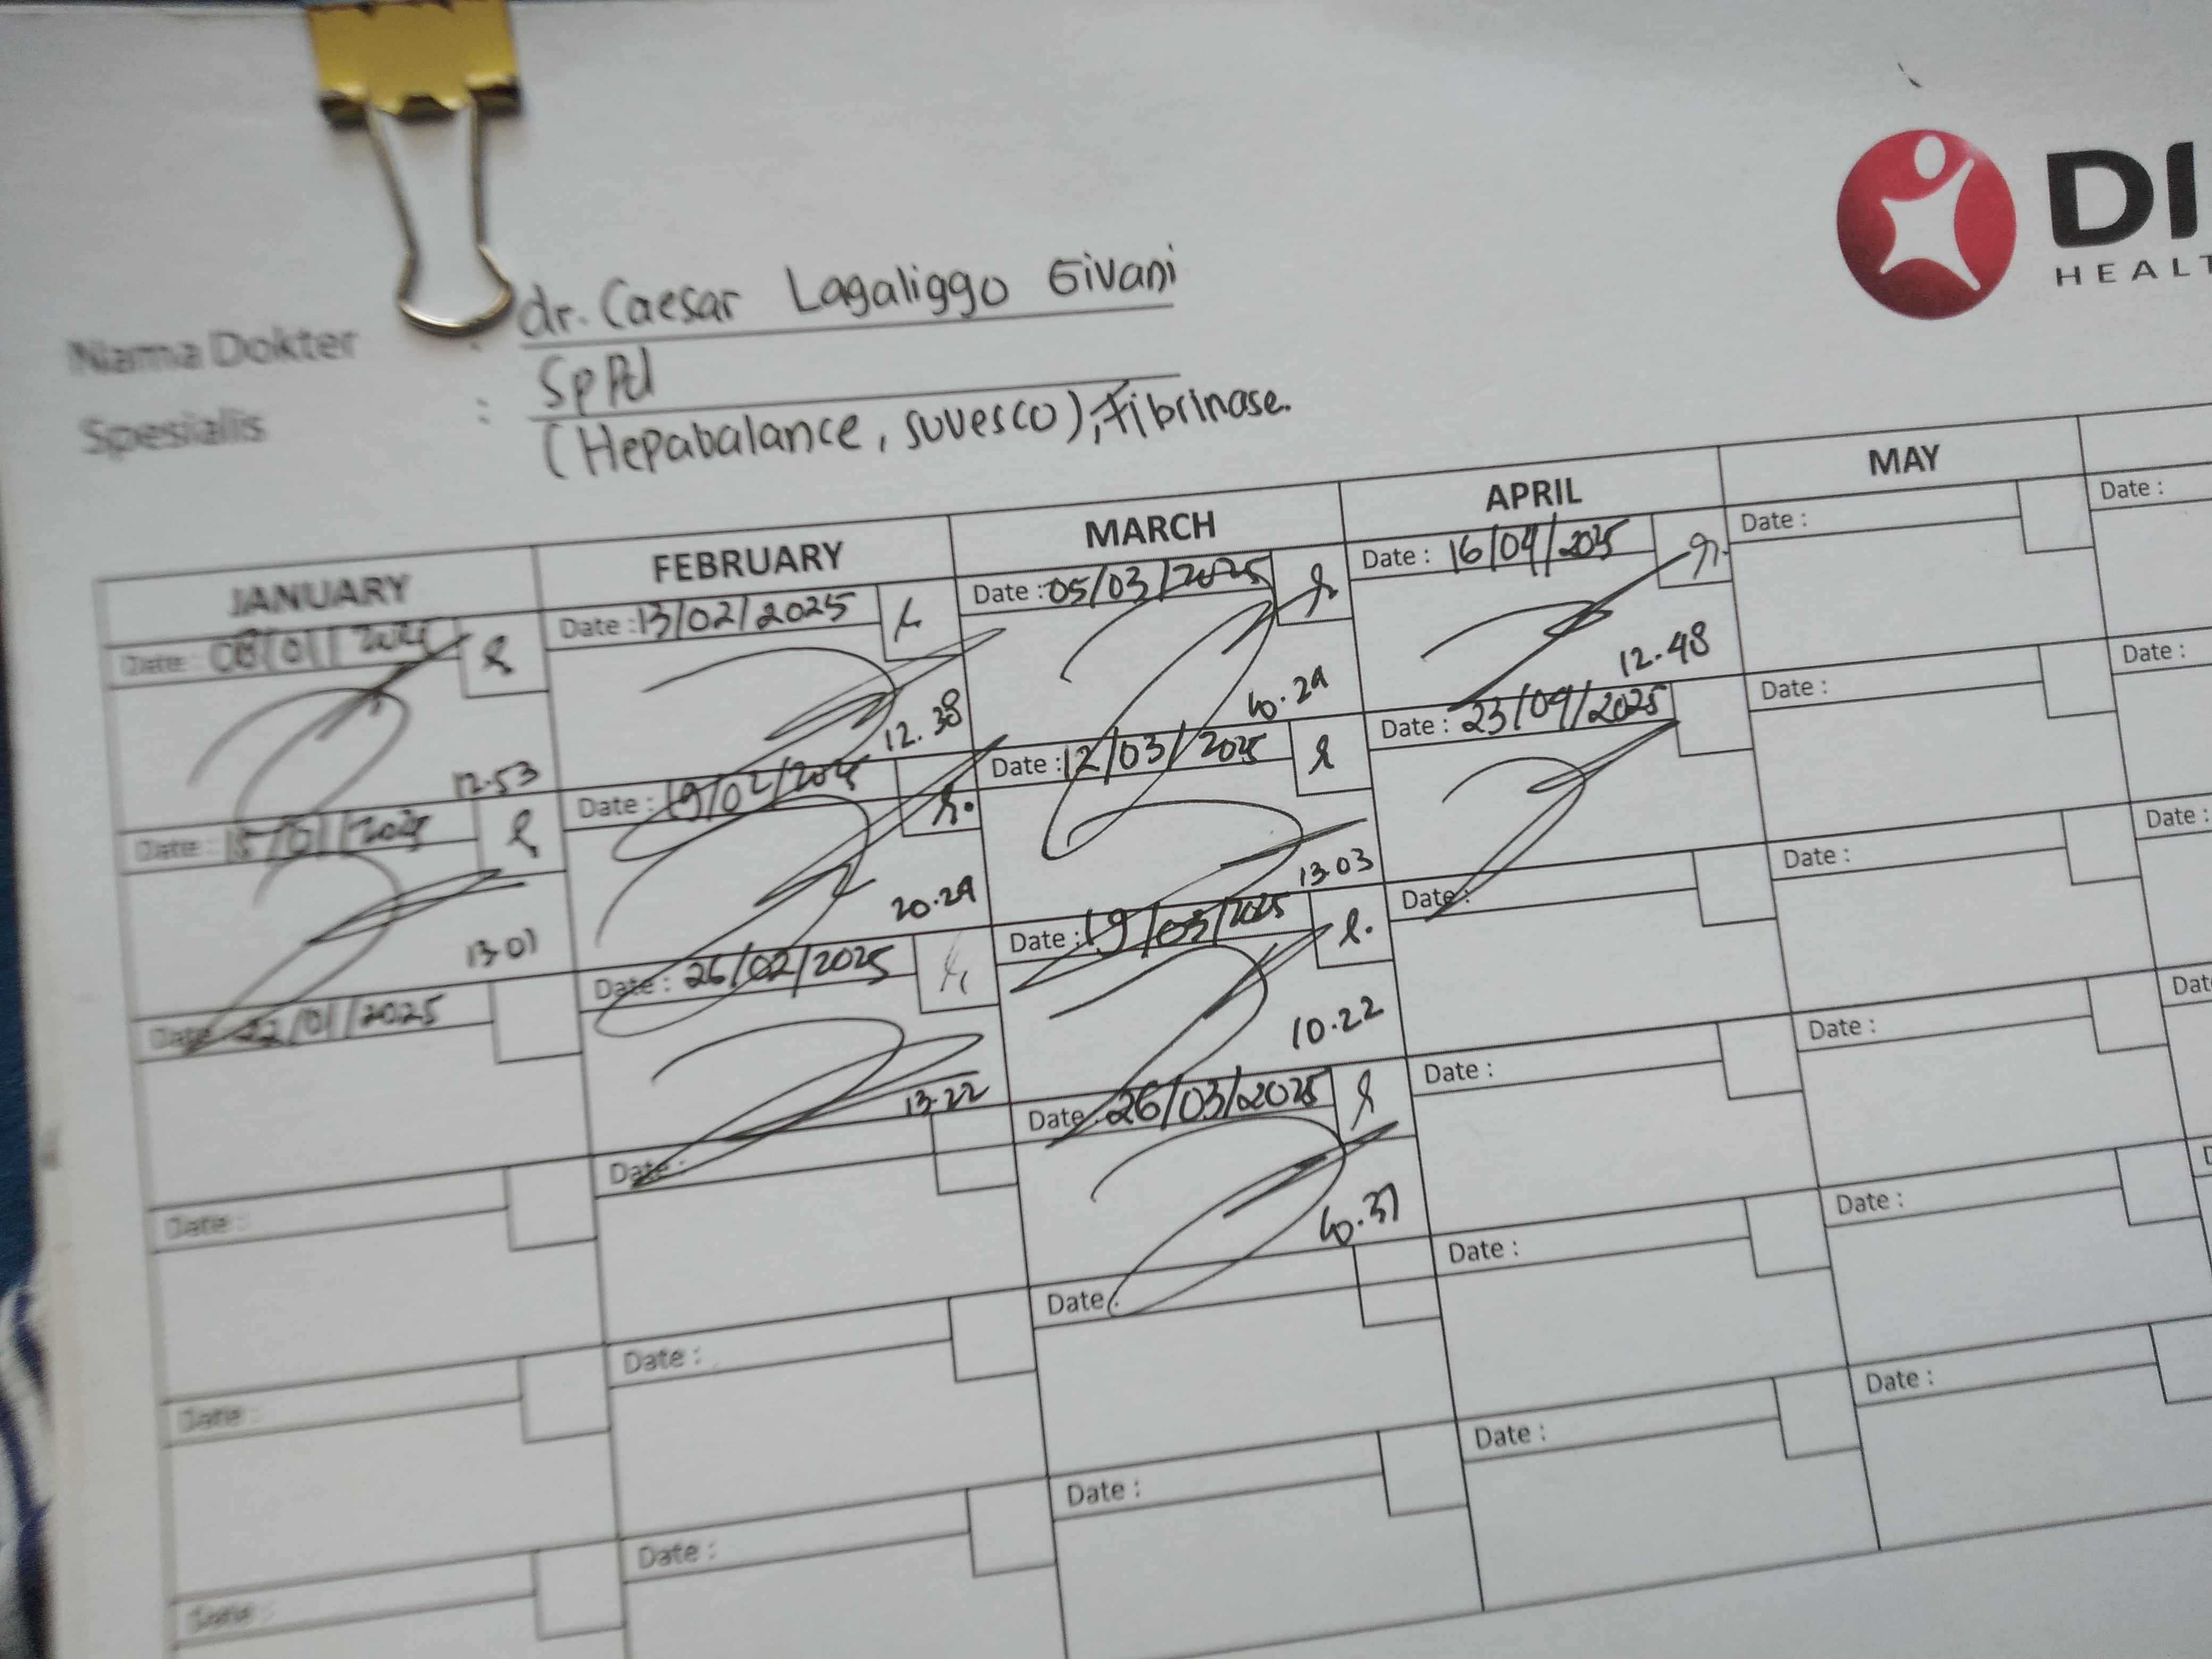 DI
HEALT
Nama Dokter : dr. Caesar Lagaliggo Givani
Spesialis : SpPd
(Hepabalance, suvesco), Fibrinase.
JANUARY FEBRUARY MARCH APRIL MAY
Date : 08/01/2025 Date : 13/02/2025 Date : 05/03/2025 Date : 16/04/2025 Date : Date :
12.53 12.38 10.29 12.48
Date : 15/01/2025 Date : 19/02/2025 Date : 12/03/2025 Date : 23/04/2025 Date : Date :
13.07 20.29 13.03
Date : 22/01/2025 Date : 26/02/2025 Date : 19/03/2025 Date : Date : Date :
13.22 10.22
Date : Date : Date : 26/03/2025 Date : Date : Dat
10.37
Date : Date : Date : Date : Date : D
Date : Date : Date : Date : Date :